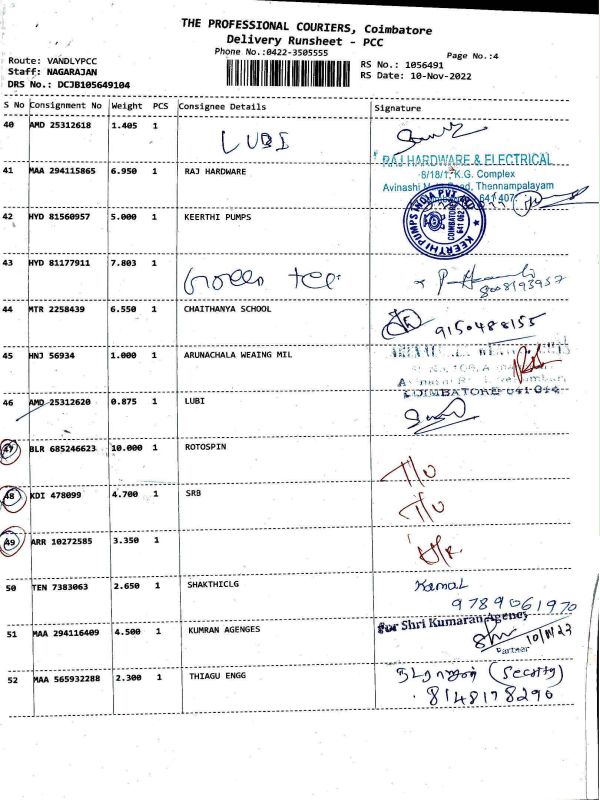 THE PROFESSIONAL COURIERS, Coimbatore
Delivery Runsheet - PCC
Phone No.:0422-3505555
Page No.:4
Route: VANDLYPCC
Staff: NAGARAJAN
DRS No.: DCJB105649104
RS No.: 1056491
RS Date: 10-Nov-2022
S No Consignment No Weight PCS Consignee Details Signature
40 AMD 25312618 1.405 1 LUBI
41 MAA 294115865 6.950 1 RAJ HARDWARE
RAJ HARDWARE & ELECTRICAL
8/18/1, K.G. Complex
Avinashi Road, Thennampalayam
641 407
42 HYD 81560957 5.000 1 KEERTHI PUMPS
KEERTHI PUMPS INDIA PVT
COIMBATORE
641 062
43 HYD 81177911 7.803 1 Green tee
8008193957
44 MTR 2258439 6.550 1 CHAITHANYA SCHOOL
9150488155
45 HNJ 56934 1.000 1 ARUNACHALA WEAING MIL
COIMBATORE-641 044
46 AMD 25312620 0.875 1 LUBI
47 BLR 685246623 10.000 1 ROTOSPIN T/O
48 KDI 478099 4.700 1 SRB T/O
49 ARR 10272585 3.350 1
50 TEN 7383063 2.650 1 SHAKTHICLG Kamal
9789061970
51 MAA 294116409 4.500 1 KUMRAN AGENGES
For Shri Kumaran Agency
Partner
52 MAA 565932288 2.300 1 THIAGU ENGG
8148178290